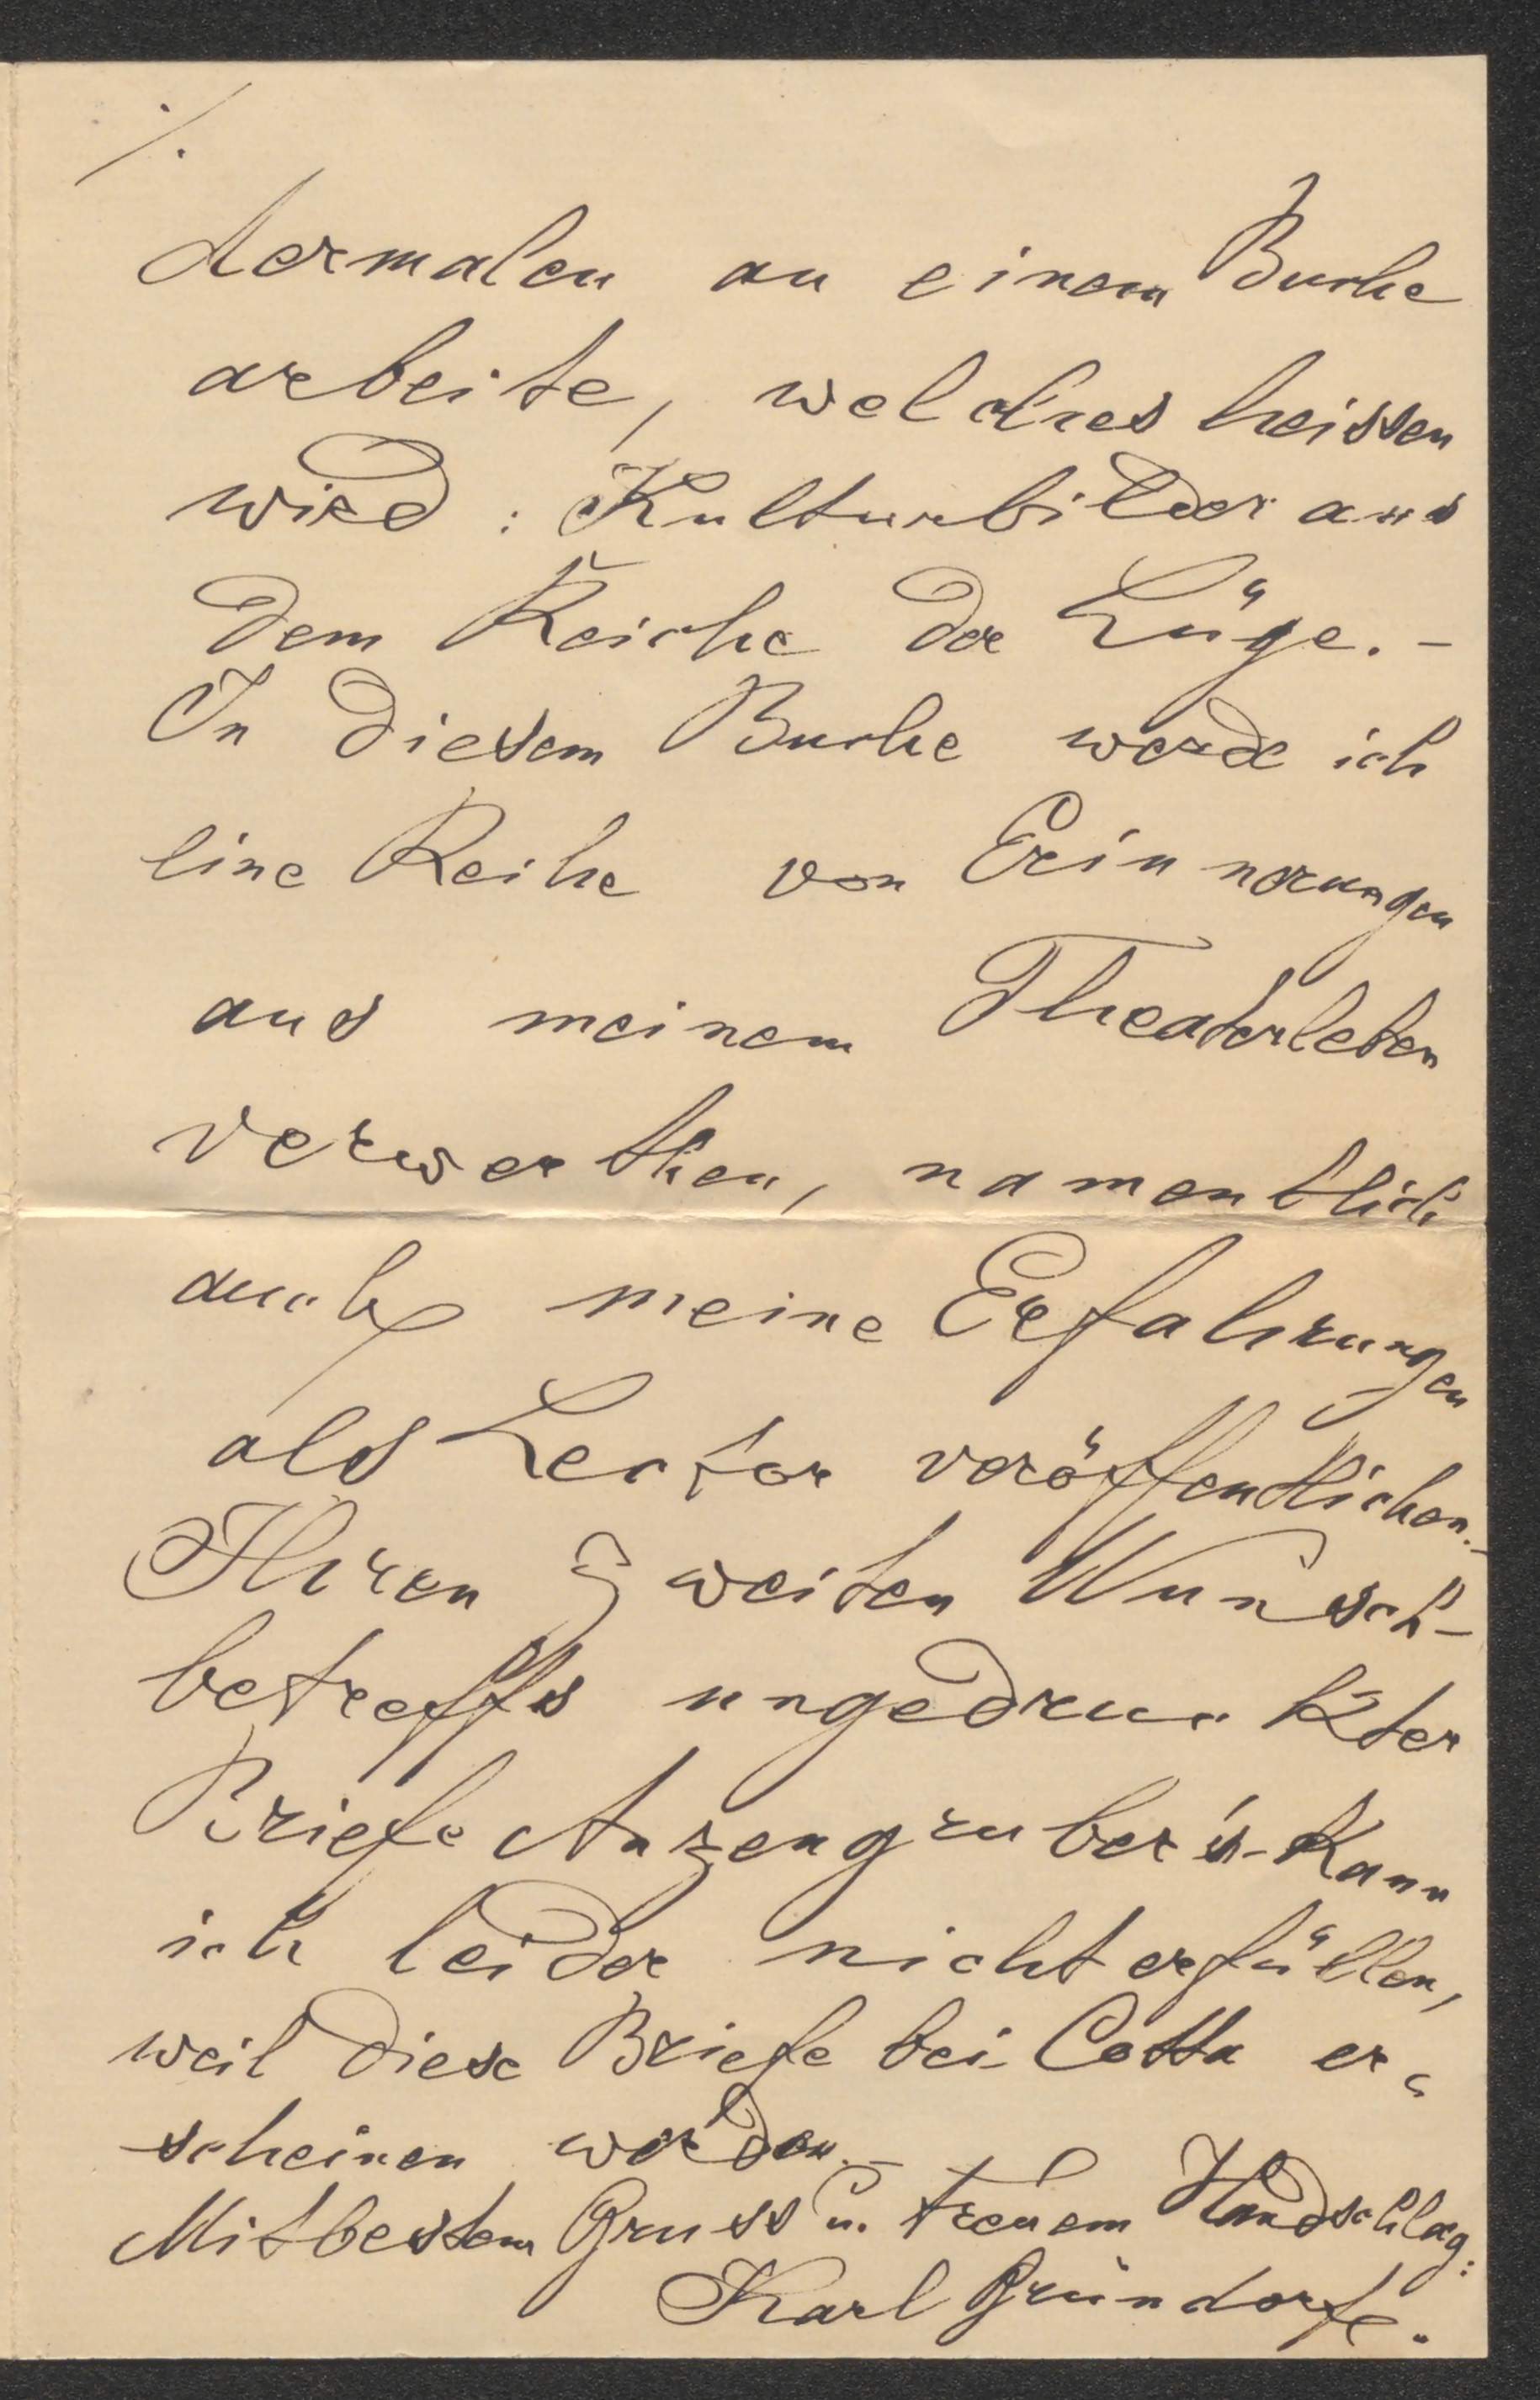 ./.
dermalen an einem Buche
arbeite, welches heissen
wird: Kulturbilder aus
dem Reiche der Lüge. -
In diesem Buche werde ich
eine Reihe von Erinnerungen
aus meinem Theaterleben
verwerthen, namentlich
auch meine Erfahrungen
als Lector veröffentlichen. -
Ihren zweiten Wunsch -
betreffs ungedruckter
Briefe Anzengruber's - kann
ich leider nicht erfüllen,
weil diese Briefe bei Cotta er=
scheinen werden. -
Mit bestem Gruss u. treuem Handschlag:
Karl Gründorf.